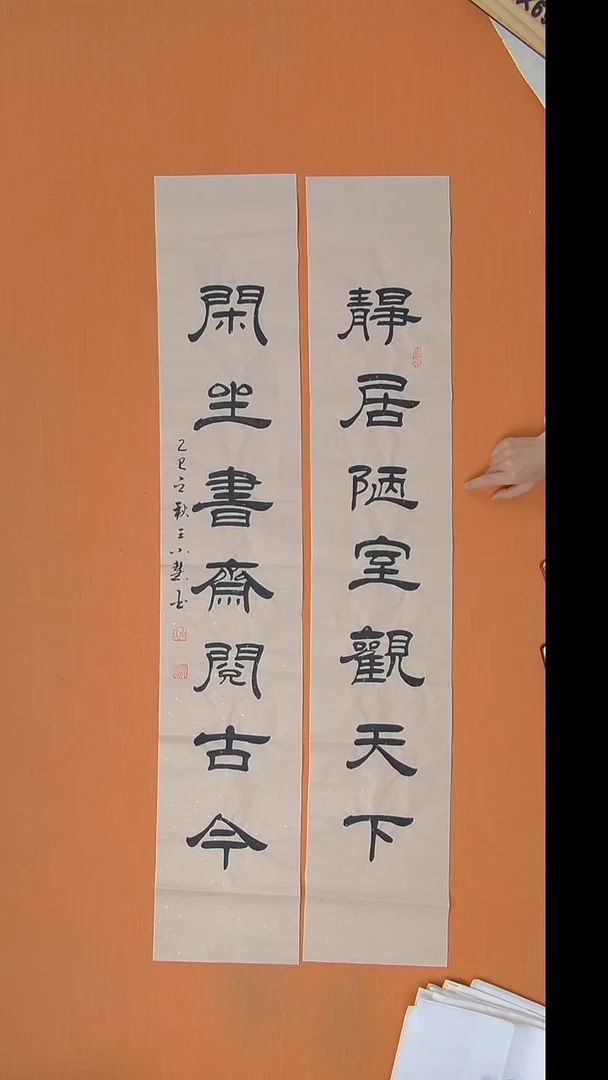 靜居陋室觀天下
閑坐書齋閱古今
乙巳立秋王小慧書